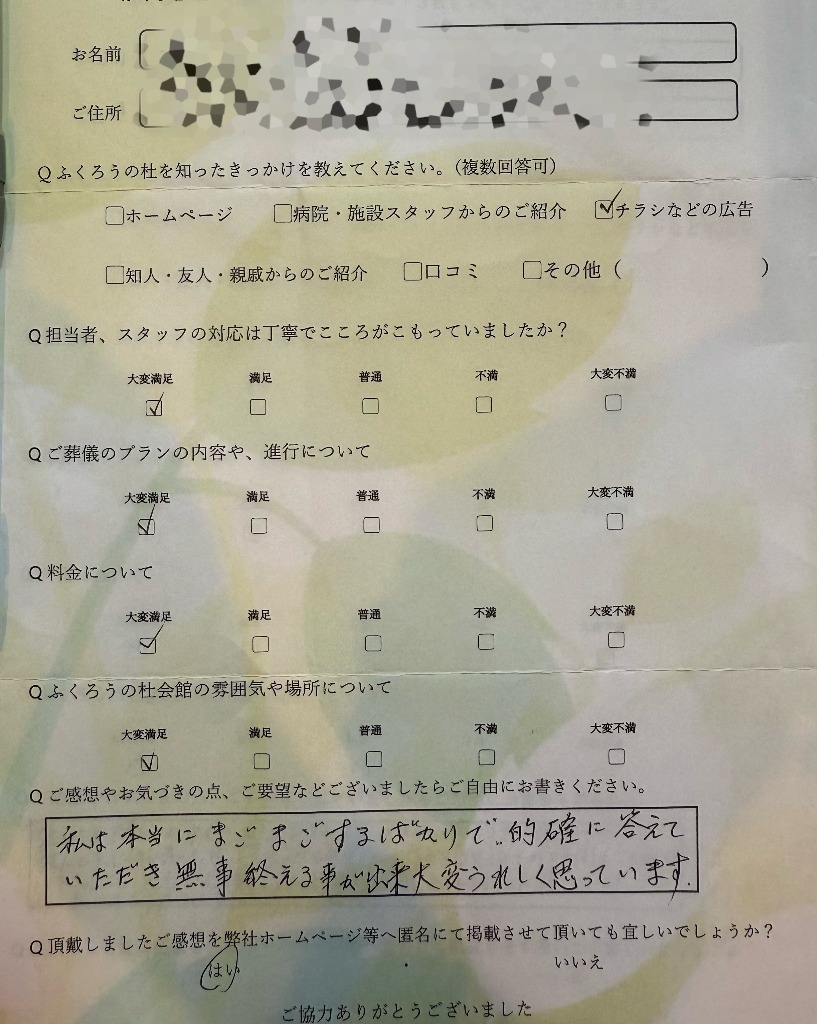 お名前
ご住所
Qふくろうの杜を知ったきっかけを教えてください。（複数回答可）
□ホームページ □病院・施設スタッフからのご紹介 ☑チラシなどの広告
□知人・友人・親戚からのご紹介 □口コミ □その他（ ）
Q担当者、スタッフの対応は丁寧でこころがこもっていましたか？
大変満足 満足 普通 不満 大変不満
☑ □ □ □ □
Qご葬儀のプランの内容や、進行について
大変満足 満足 普通 不満 大変不満
☑ □ □ □ □
Q料金について
大変満足 満足 普通 不満 大変不満
☑ □ □ □ □
Qふくろうの杜会館の雰囲気や場所について
大変満足 満足 普通 不満 大変不満
☑ □ □ □ □
Qご感想やお気づきの点、ご要望などございましたらご自由にお書きください。
私は本当にまごまごするばかりで..的確に答えて
いただき無事終える事が出来大変うれしく思っています.
Q頂戴しましたご感想を弊社ホームページ等へ匿名にて掲載させて頂いても宜しいでしょうか？
はい ・ いいえ
ご協力ありがとうございました